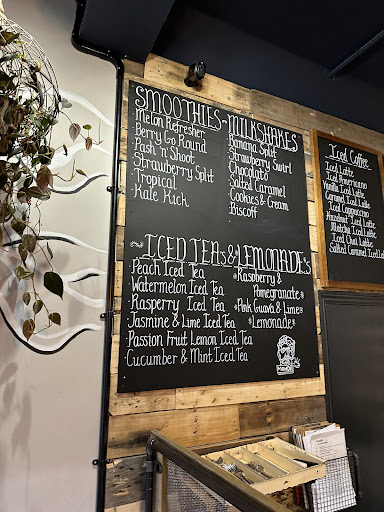 SMOOTHIES - MILKSHAKES
Melon Refresher
Berry Go Round
Pash 'n' Shoot
Strawberry Split
Tropical
Kale Kick
Banana Split
Strawberry Swirl
Chocolate
Salted Caramel
Cookies & Cream
Biscoff
~ICED TEAs & LEMONADE's
Peach Iced Tea
Watermelon Iced Tea
Rasperry Iced Tea
Jasmine & Lime Iced Tea
Passion Fruit Lemon Iced Tea
Cucumber & Mint Iced Tea
*Raspberry &
Pomegranate*
*Pink Guava & Lime*
*Lemonade*
Iced Coffee
Iced Latte
Iced Americano
Vanilla Iced Latte
Caramel Iced Latte
Iced Cappuccino
Hazelnut Iced Latte
Matcha Iced Latte
Iced Chai Latte
Salted Caramel Iced